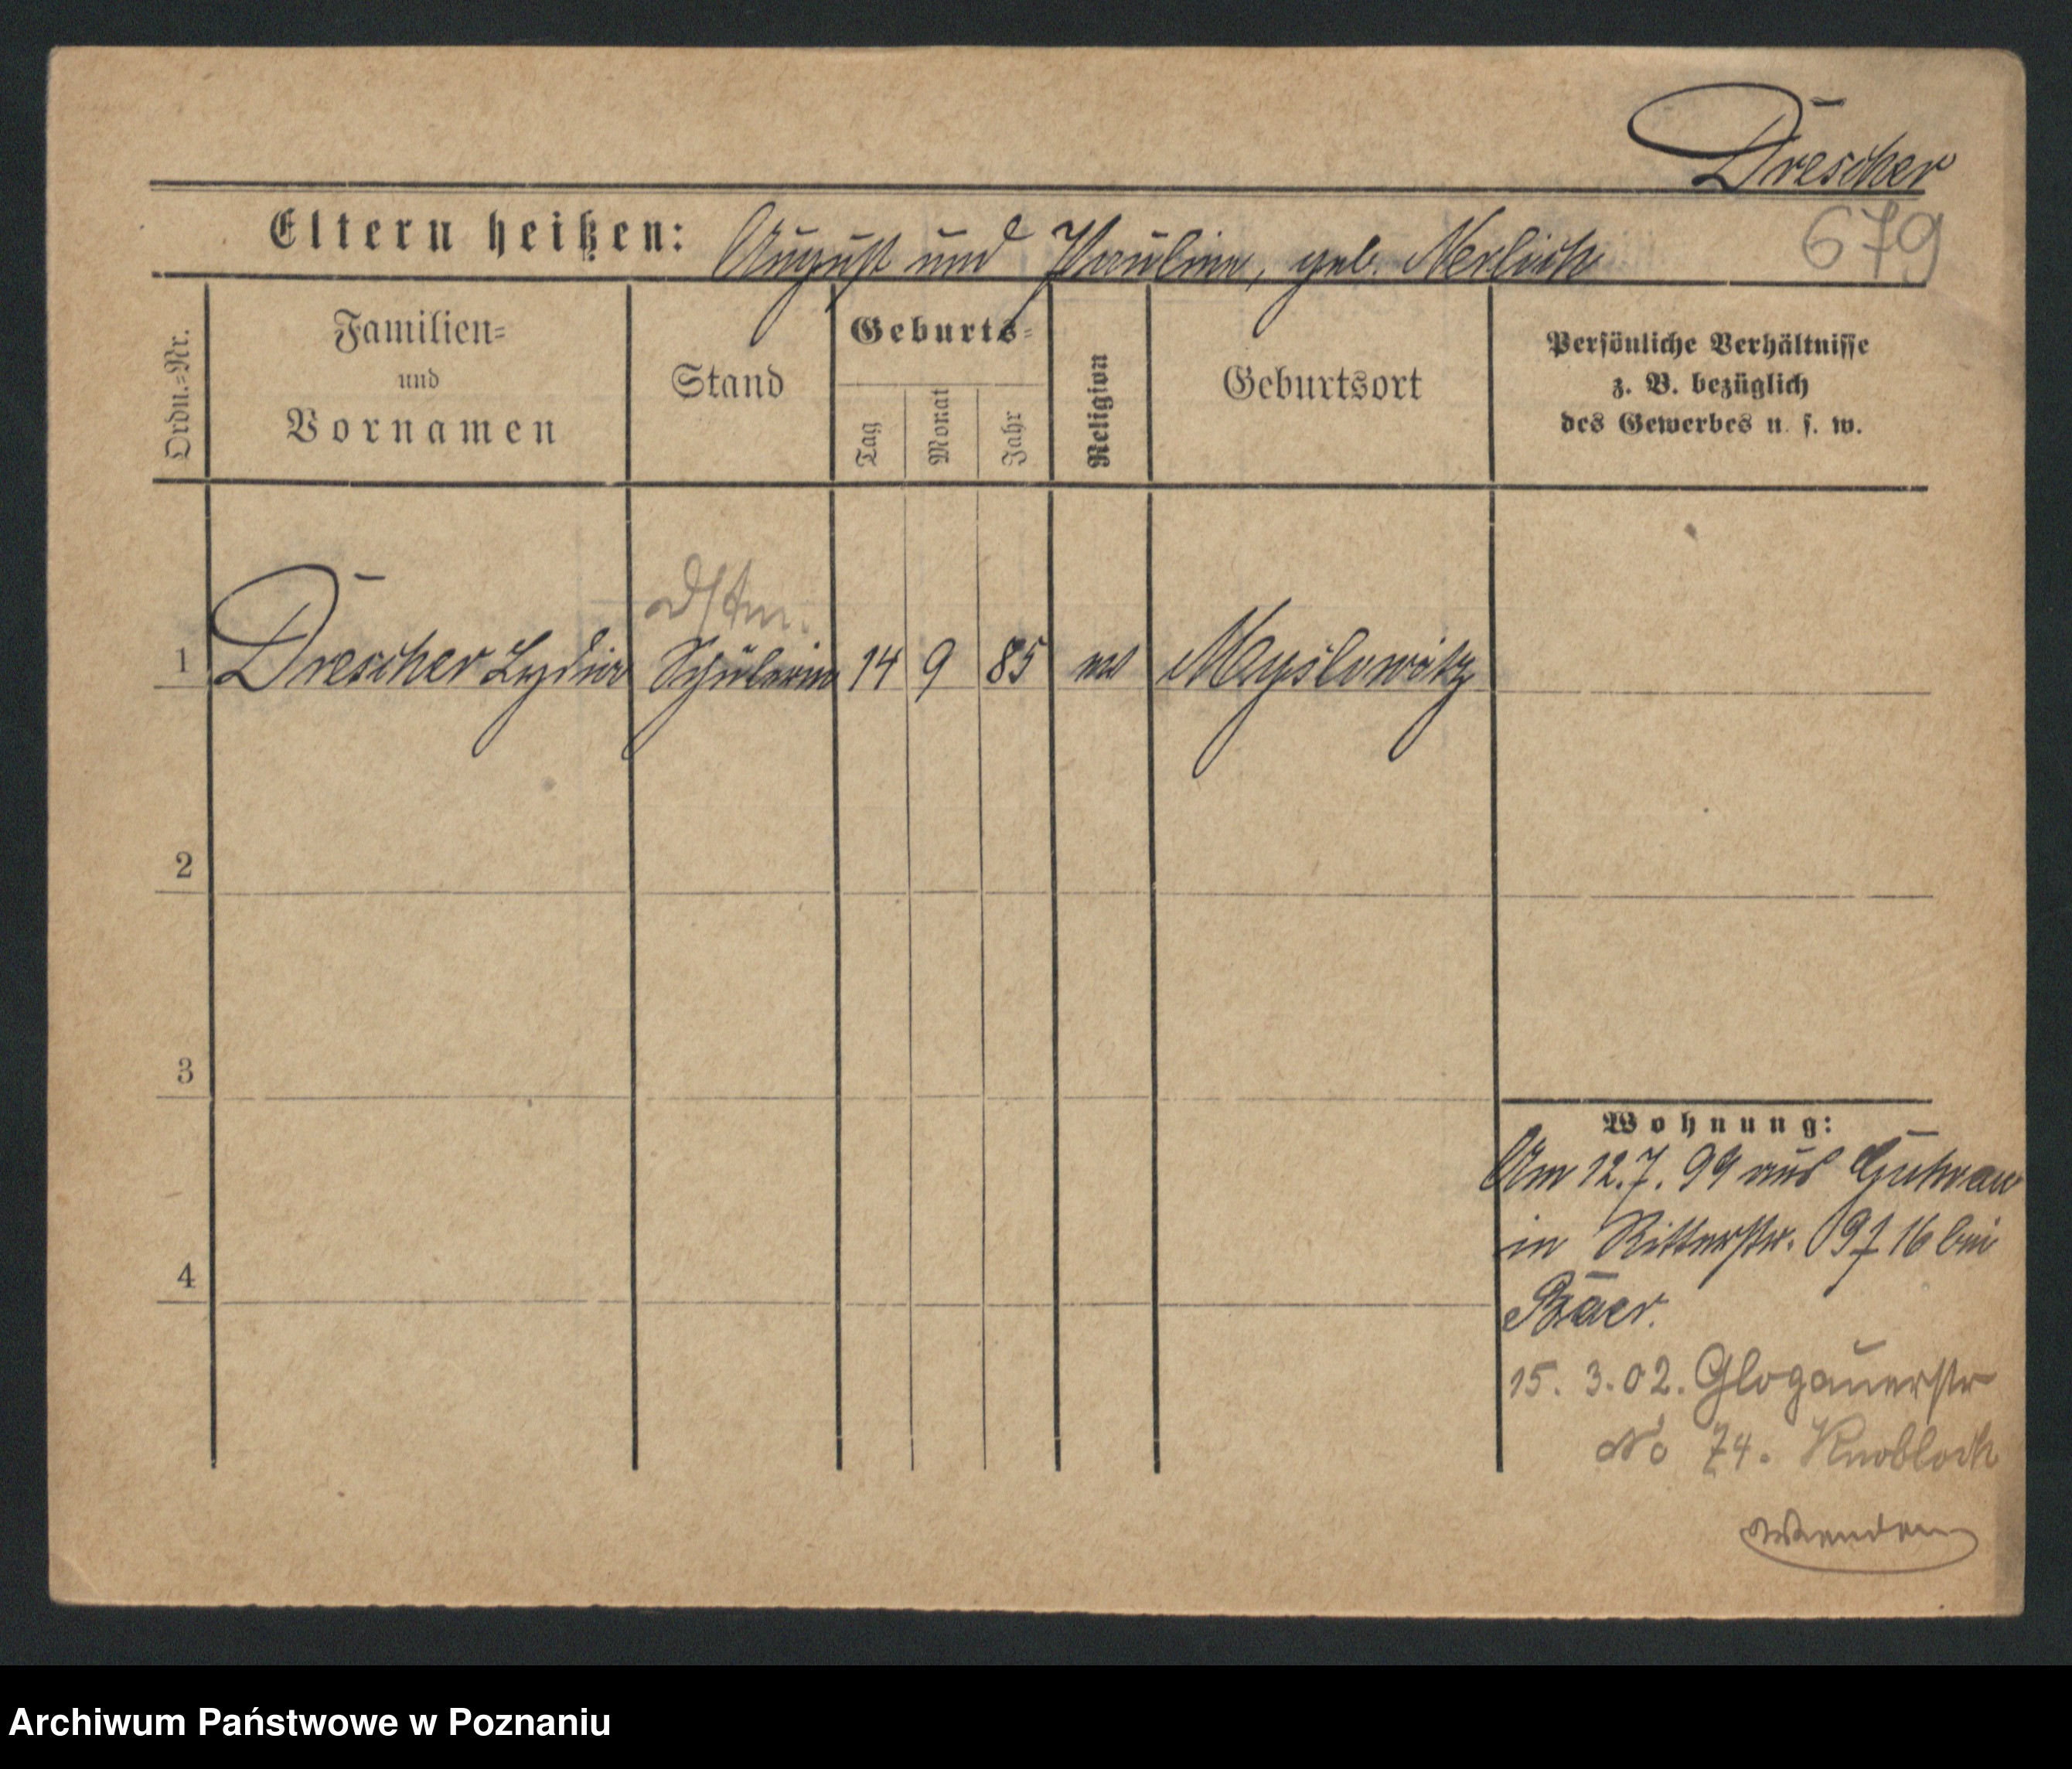 Drescher
Eltern heißen: August und Pauline, geb. Nerlich
679
Ordn.=Nr.
Familien=
und
Vornamen
Stand
Geburts=
Tag
Monat
Jahr
Religion
Geburtsort
Persönliche Verhältnisse
z. B. bezüglich
des Gewerbes u. s. w.
1 Drescher Lydia Schülerin 14 9 85 ev Myslowitz
2
3
4
Wohnung:
Am 12.7.99 aus Guhrau
in Ritterstr. 16 bei
Baer.
15. 3.02. Glogauerstr
No 74. Knobloch
Wenden
Archiwum Państwowe w Poznaniu